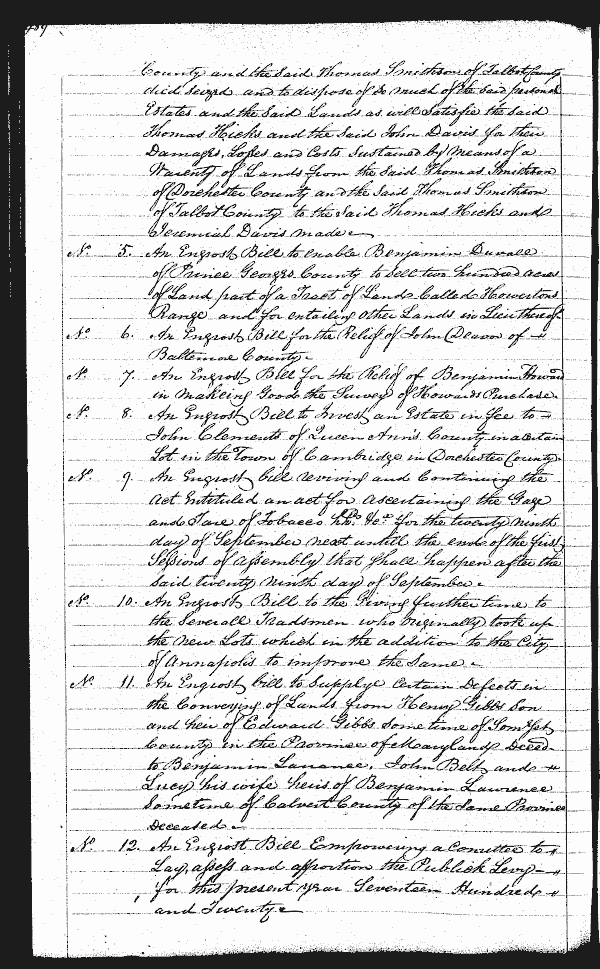 489
County and the Said Thomas Smithson of Talbot County
died seized and to dispose of so much of the Said personal
Estates and the Said Lands as will Satisfie the Said
Thomas Hicks and the Said John Davis for their
Damages, Losses and Costs Sustained by Means of a
Warenty of Lands from the Said Thomas Smithson
of Dorchester County and the Said Thomas Smithson
of Talbot County to the Said Thomas Hicks and
Jeremiah Davis made
No. 5. An Engrost Bill to enable Benjamin Duvall
of Prince Georges County to Sell two hundred acres
of Land part of a Tract of Land Called Howertons
Range and for entailing other Lands in Lieu thereof
No. 6. An Engrost Bill for the Relief of John Deavor of
Baltimore County
No. 7. An Engrost Bill for the Relief of Benjamin Howard
in makeing Good the Survey of Howards Purchase
No. 8. An Engrost Bill to Invest an Estate in fee to
John Clements of Queen Ann's County in a certain
Lot in the Town of Cambridge in Dorchester County
No. 9. An Engrost bill reviving and Continuing the
act Entituled an act for ascertaining the Gage
and Tare of Tobacco hhds. &ca. for the twenty ninth
day of September next untill the end of the first
Sessions of assembly that shall happen after the
Said twenty ninth day of September.
No. 10. An Engrost Bill to the Giving further time to
the Severall Tradsmen who originally took up
the new Lots which in the addition to the City
of Annapolis to improve the Same.
No. 11. An Engrost bill to Supplye Certain Defects in
the Conveying of Lands from Henry Gibbs Son
and heir of Edward Gibbs Some time of Somrset
County in the Province of Maryland Deced
to Benjamin Laurence, John Belt and
Lucy his wife heirs of Benjamin Lawrence
Sometime of Calvert County of the Same Province
Deceased
No. 12. An Engrost Bill Empowering a Comittee to
Lay, assess and apportion the Publick Levy
for this present year Seventeen Hundred
and Twenty